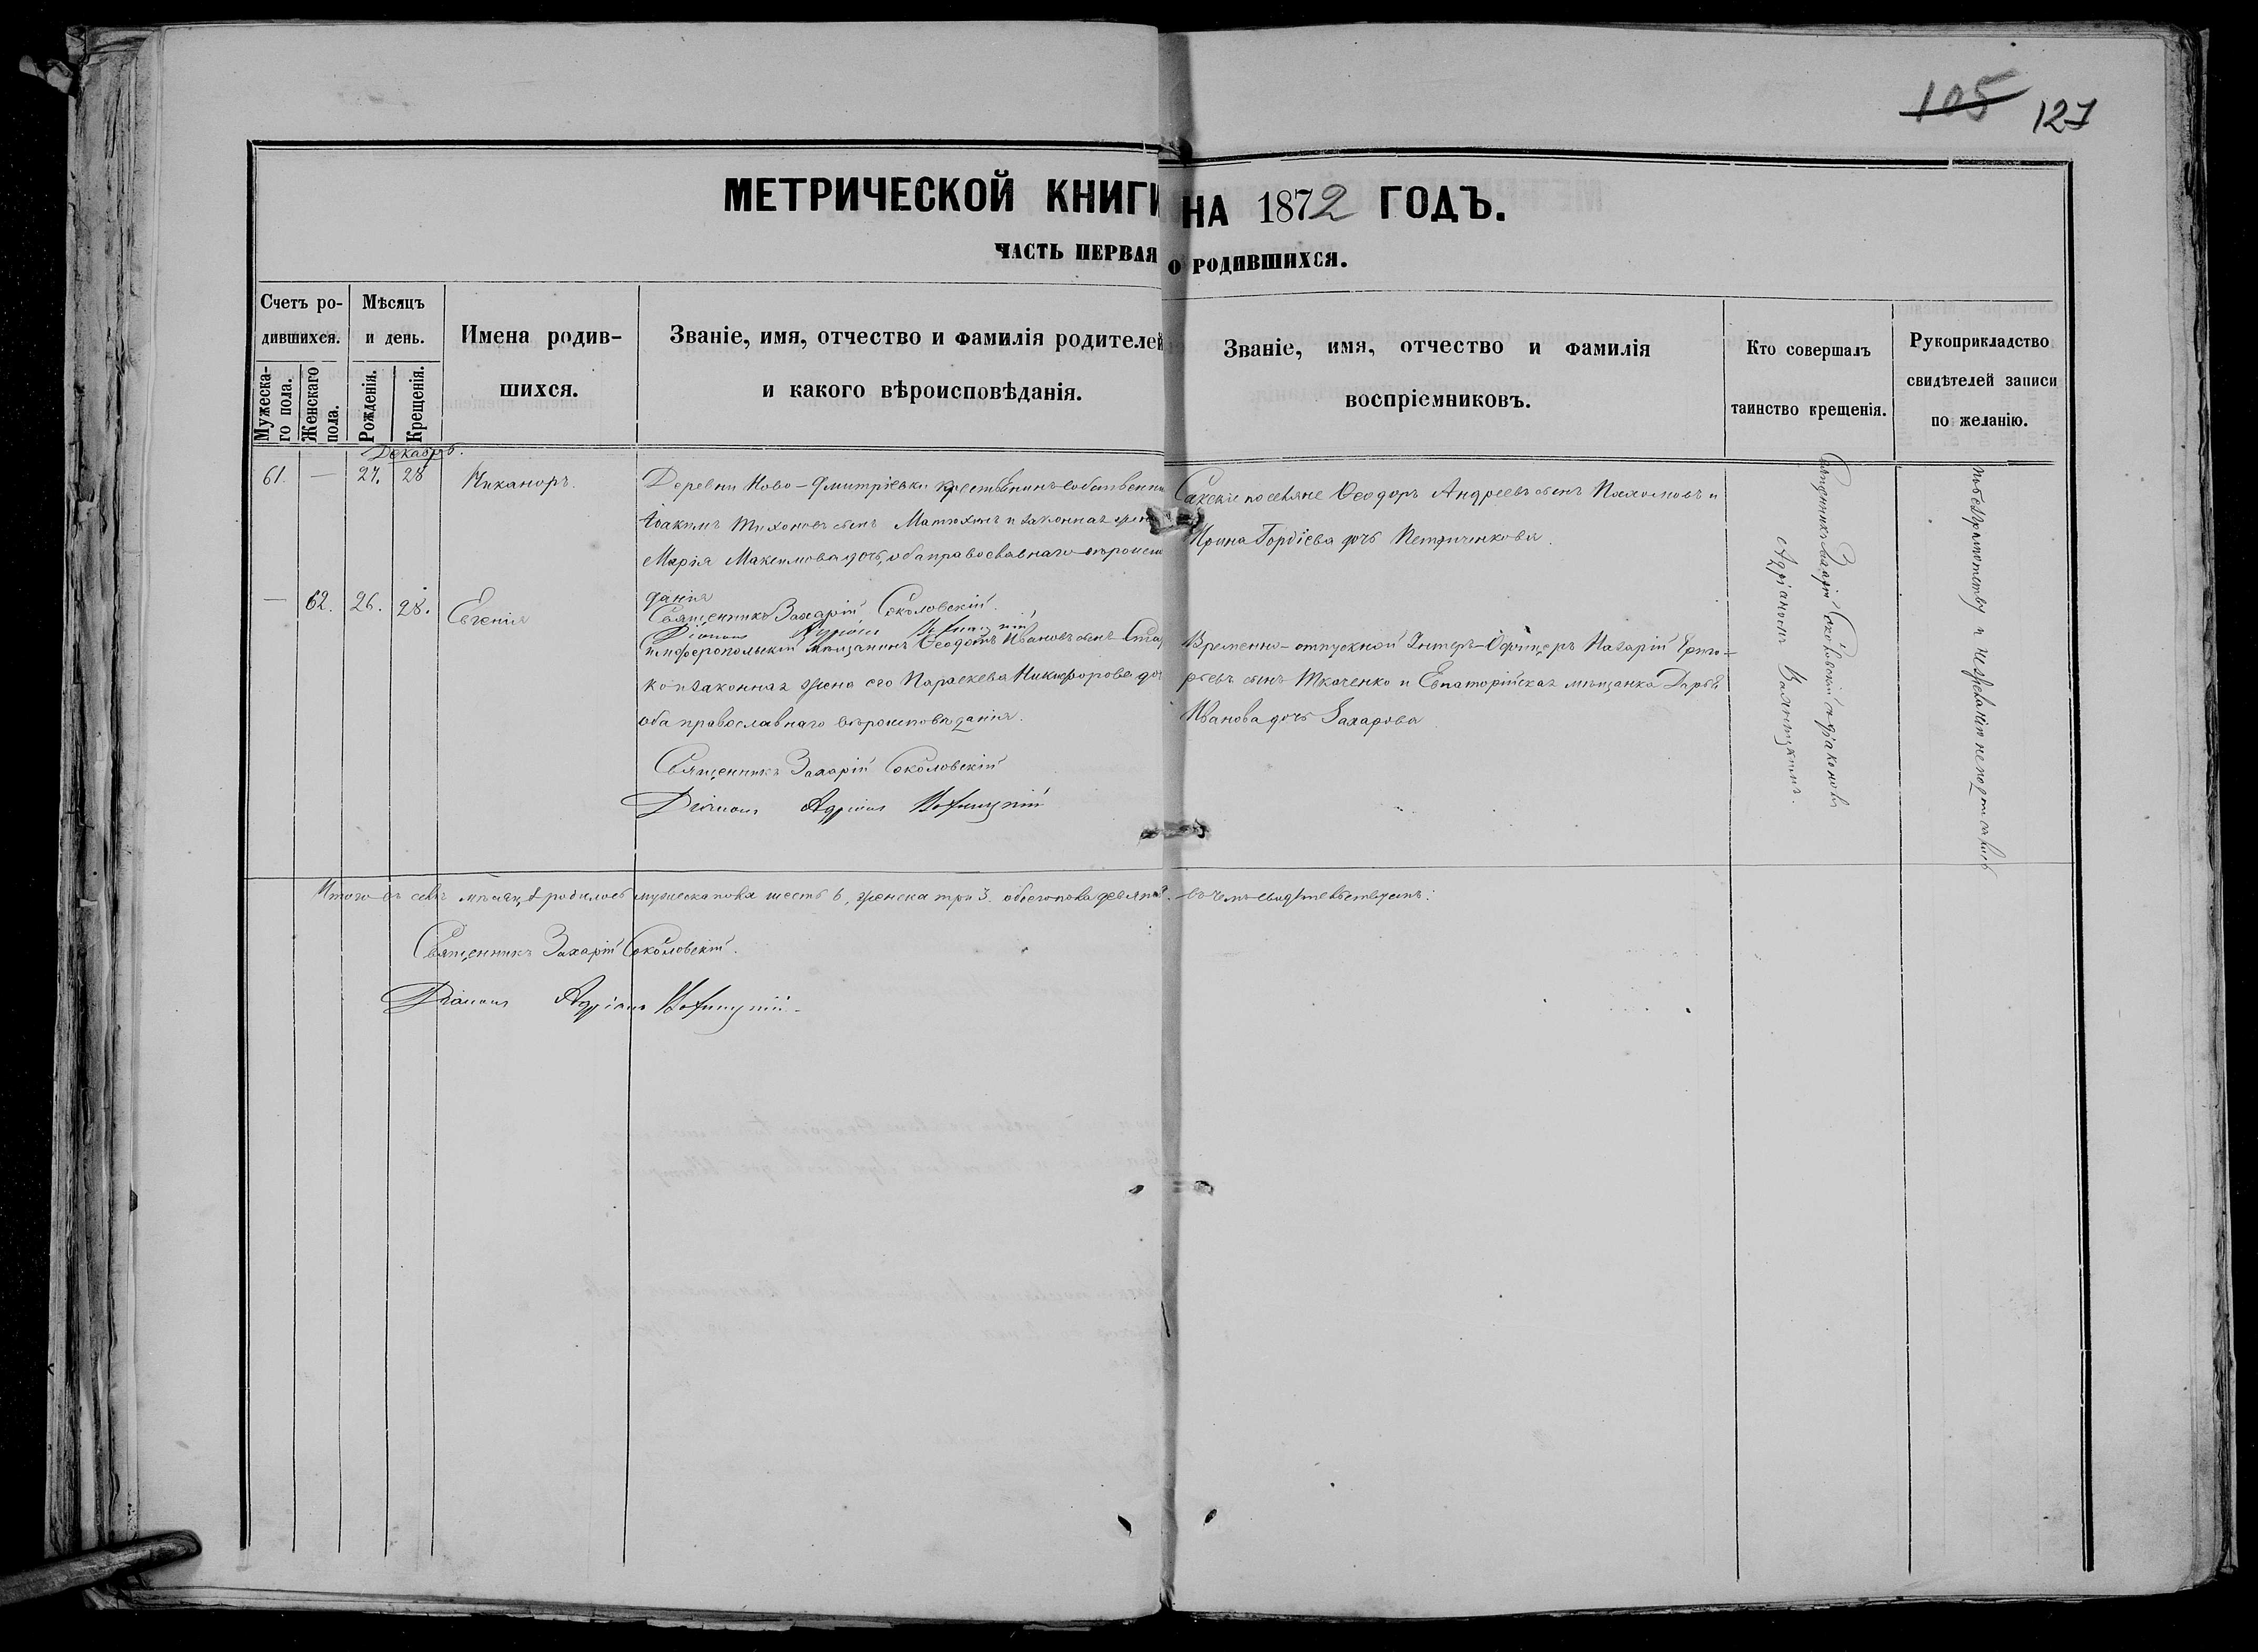 105 127
МЕТРИЧЕСКОЙ КНИГИ НА 1872 ГОДЪ.
ЧАСТЬ ПЕРВАЯ О РОДИВШИХСЯ.
Счетъ ро-
дившихся.
Мужеска-
го пола.
Женскаго
пола.
Мѣсяцъ
и день.
Рожденія.
Крещенія.
Имена родив-
шихся.
Званіе, имя, отчество и фамилія родителей
и какого вѣроисповѣданія.
Званіе, имя, отчество и фамилія
воспріемниковъ.
Кто совершалъ
таинство крещенія.
Рукоприкладство
свидѣтелей записи
по желанію.
Декабрь.
61. — 27. 28 Никаноръ.
Деревни Ново-Дмитріевки крестьянинъ-собственни
Іоакимъ Тихоновъ сынъ Матюхинъ и законная жена
Марія Максимова дочь, оба православнаго вѣроиспо
данія
Священникъ Захарій Соколовскій.
Діаконъ Адріанъ
Сакскіе поселяне Ѳеодоръ Андреевъ сынъ Пахомовъ и
Ирина Гордіева дочь Петриченкова.
— 62. 26. 28. Евгенія
Симферопольскій мѣщанинъ Ѳеодотъ Ивановъ сынъ
ко и законная жена его Параскева Никифорова до
оба православнаго вѣроисповѣданія.
Священникъ Захарій Соколовскій
Діаконъ Адріанъ
Временно-отпускной Унтеръ-Офицеръ Назарій Григо-
рьевъ сынъ Ткаченко и Евпаторійская мѣщанка Дарья
Иванова дочь Захарова
Священникъ Захарій Соколовскій съ діакономъ
Адріаномъ
По безграмотству и нежеланію не подписались
Итого въ семъ мѣсяцѣ родилось мужеска пола шесть 6, женска три 3. обоего пола девять 9. въ чемъ свидѣтельствуемъ:
Священникъ Захарій Соколовскій.
Діаконъ Адріанъ